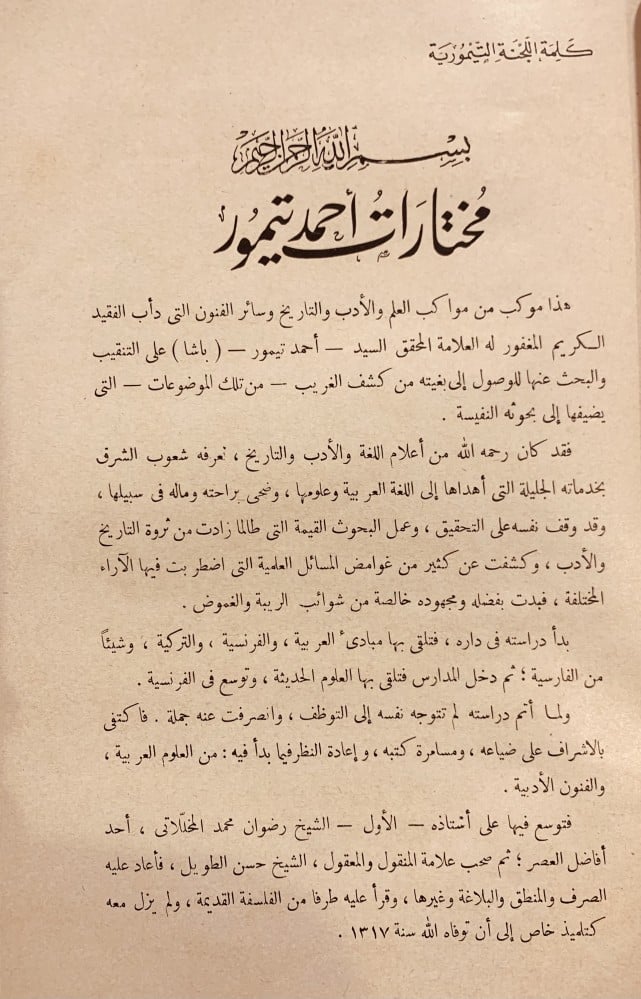 كَلِمَة اللّجْنَة التّيْمُوْريّة
بِسْمِ اللهِ الرَّحْمنِ الرَّحِيْمِ
مُختَارَاتُ أحمد تيمُور
هذا موكب من مواكب العلم والأدب والتاريخ وسائر الفنون التى دأب الفقيد
الكريم المغفور له العلامة المحقق السيد — أحمد تيمور — ( باشا ) على التنقيب
والبحث عنها للوصول إلى بغيته من كشف الغريب — من تلك الموضوعات — التى
يضيفها إلى بحوثه النفيسة .
فقد كان رحمه الله من أعلام اللغة والأدب والتاريخ ، تعرفه شعوب الشرق
بخدماته الجليلة التى أهداها إلى اللغة العربية وعلومها ، وضحى براحته وماله فى سبيلها ،
وقد وقف نفسه على التحقيق ، وعمل البحوث القيمة التى طالما زادت من ثروة التاريخ
والأدب ، وكشفت عن كثير من غوامض المسائل العلمية التى اضطربت فيها الآراء
المختلفة ، فبدت بفضله ومجهوده خالصة من شوائب الريبة والغموض .
بدأ دراسته فى داره ، فتلقى بها مبادىء العربية ، والفرنسية ، والتركية ، وشيئاً
من الفارسية ؛ ثم دخل المدارس فتلقى بها العلوم الحديثة ، وتوسع فى الفرنسية .
ولما أتم دراسته لم تتوجه نفسه إلى التوظف ، وانصرفت عنه جملة . فاكتفى
بالاشراف على ضياعه ، ومسامرة كتبه ، وإعادة النظر فيما بدأ فيه : من العلوم العربية ،
والفنون الأدبية .
فتوسع فيها على أستاذه — الأول — الشيخ رضوان محمد المخلّلاتى ، أحد
أفاضل العصر ؛ ثم صحب علامة المنقول والمعقول ، الشيخ حسن الطويل ، فأعاد عليه
الصرف والمنطق والبلاغة وغيرها ، وقرأ عليه طرفا من الفلسفة القديمة ، ولم يزل معه
كتلميذ خاص إلى أن توفاه الله سنة ١٣١٧ .